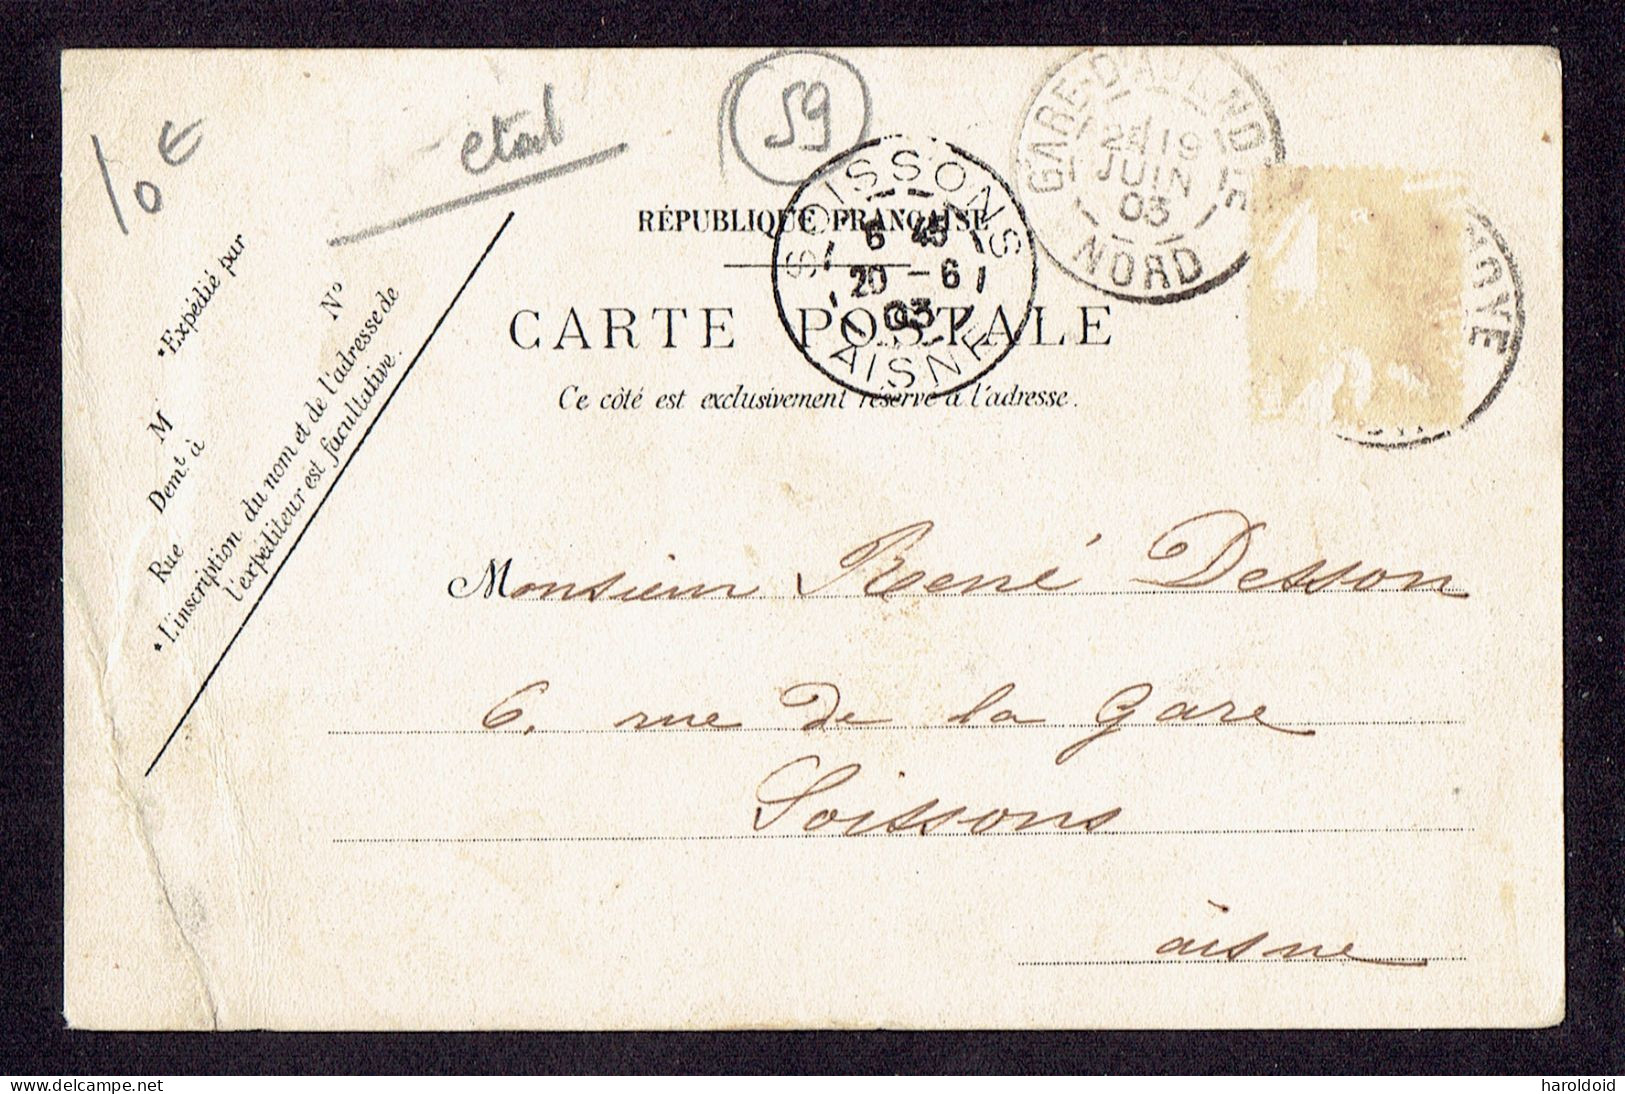 10 €
etat
59
RÉPUBLIQUE FRANÇAISE
CARTE POSTALE
Ce côté est exclusivement réservé à l'adresse.
*Expédié par
M
Demt. à
Rue
N°
*L'inscription du nom et de l'adresse de
l'expéditeur est facultative.
SOISSONS
6 45
20 - 6
03
AISNE
GARE-D'AULNOYE
2E 19
JUIN
03
NORD
NOYE
Monsieur René Desson
6, rue de la Gare
Soissons
aisne
delcampe.net
haroldoid